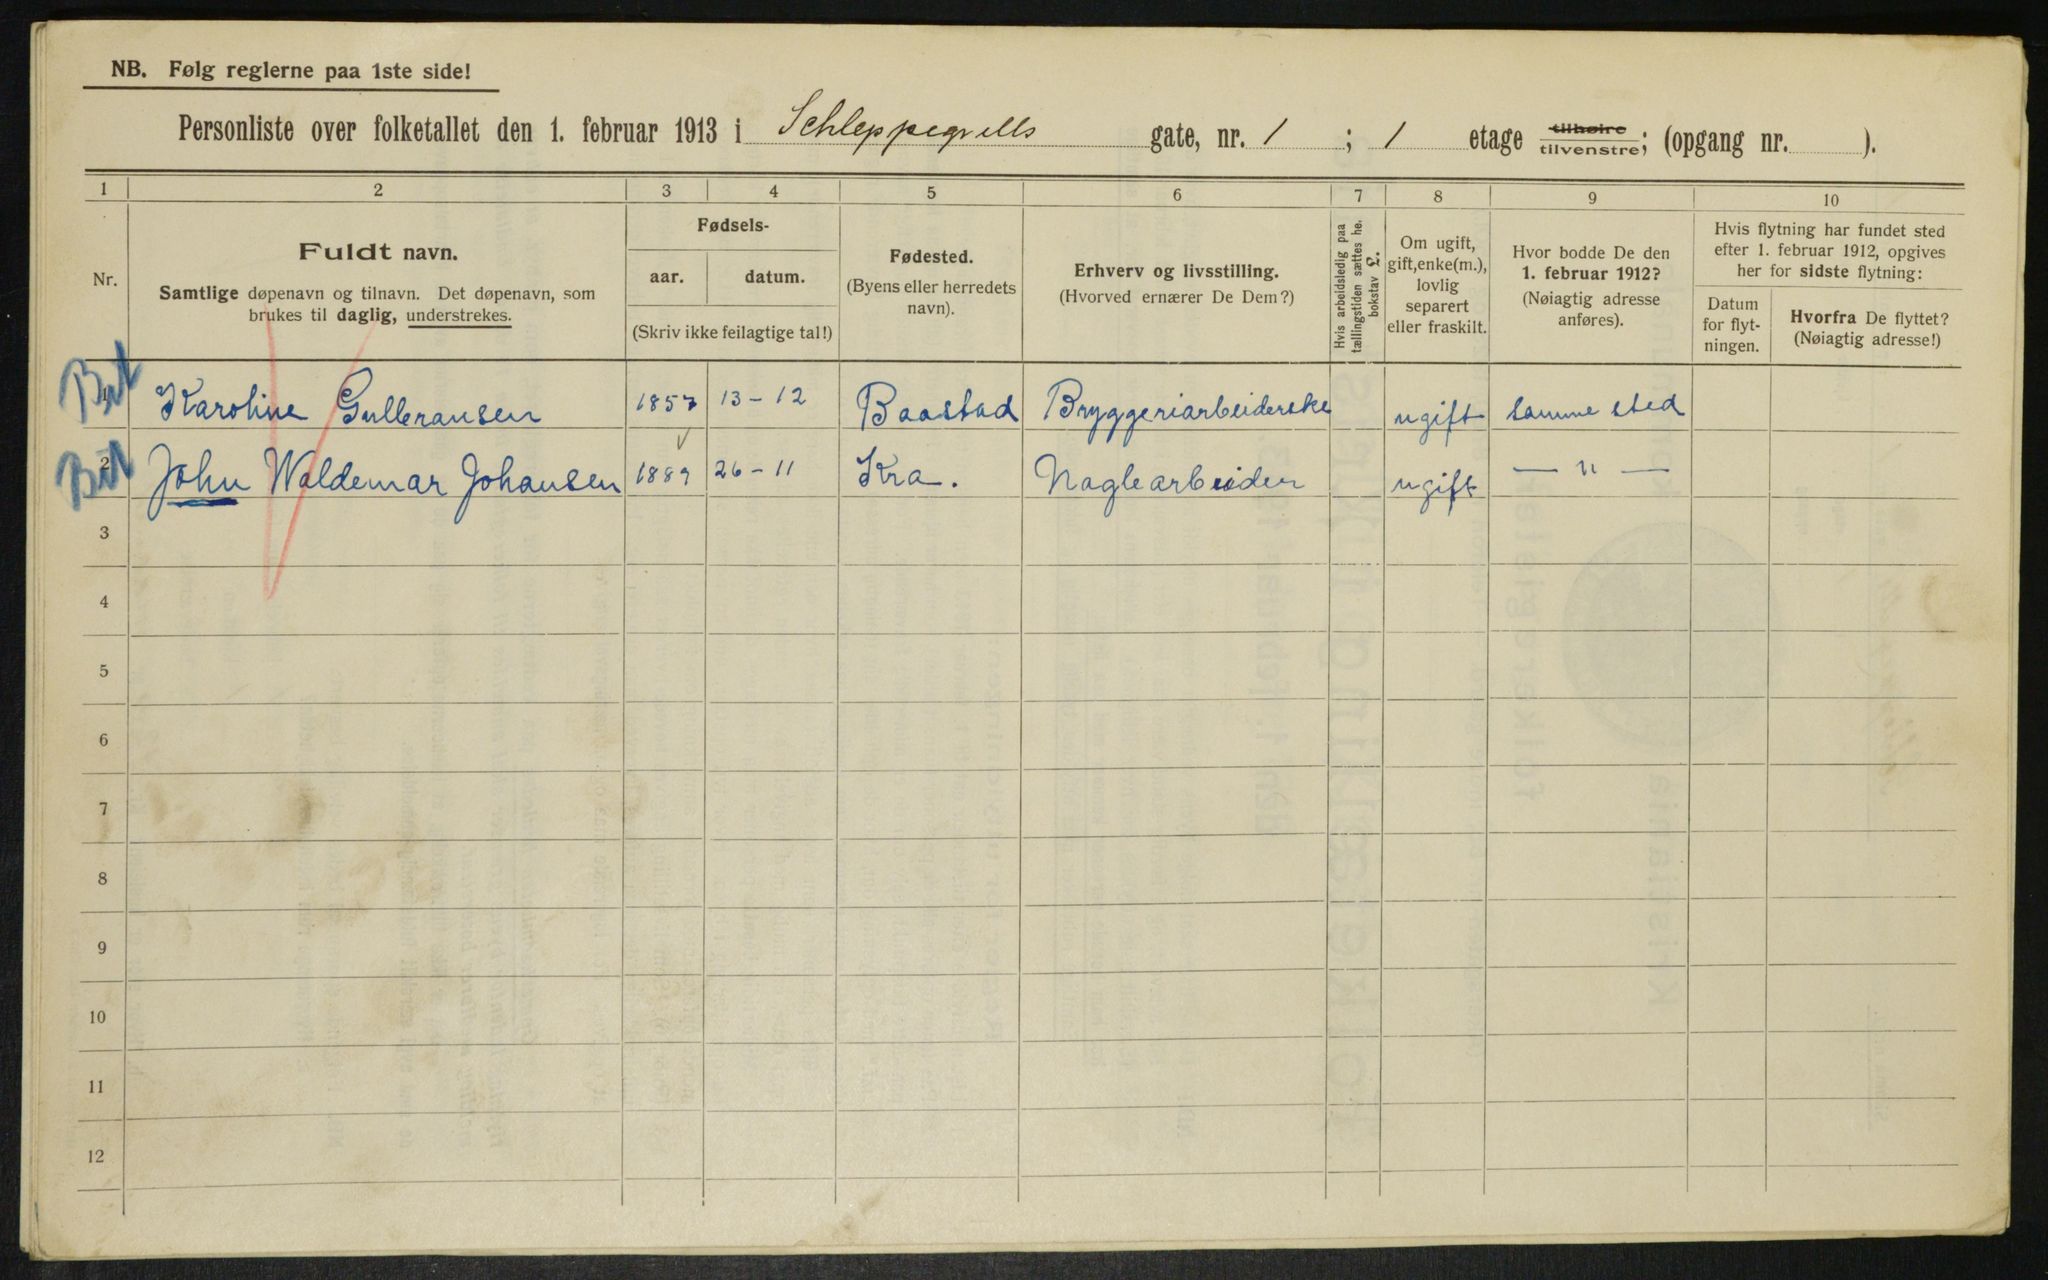 NB. Følg reglerne paa 1ste side!
Personliste over folketallet den 1. februar 1913 i Schleppegrells gate, nr. 1 ; 1 etage tilhøire tilvenstre; (opgang nr. ).
1 2 3 4 5 6 7 8 9 10
Nr.
Fuldt navn.
Samtlige døpenavn og tilnavn. Det døpenavn, som
brukes til daglig, understrekes.
Fødsels-
aar. datum.
(Skriv ikke feilagtige tal!)
Fødested.
(Byens eller herredets
navn).
Erhverv og livsstilling.
(Hvorved ernærer De Dem?)
Hvis arbeidsledig paa
tællingstiden sættes he.
bokstav L.
Om ugift,
gift, enke(m.),
lovlig
separert
eller fraskilt.
Hvor bodde De den
1. februar 1912?
(Nøiagtig adresse
anføres).
Hvis flytning har fundet sted
efter 1. februar 1912, opgives
her for sidste flytning:
Datum
for flyt-
ningen.
Hvorfra De flyttet?
(Nøiagtig adresse!)
1 Karoline Gulleransen 1857 13-12 Baastad Bryggeriarbeiderske ugift samme sted
2 John Waldemar Johansen 1889 26-11 Kra. Naglearbeider ugift — " —
3
4
5
6
7
8
9
10
11
12